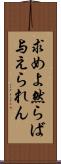 求めよ然らば
与えられん